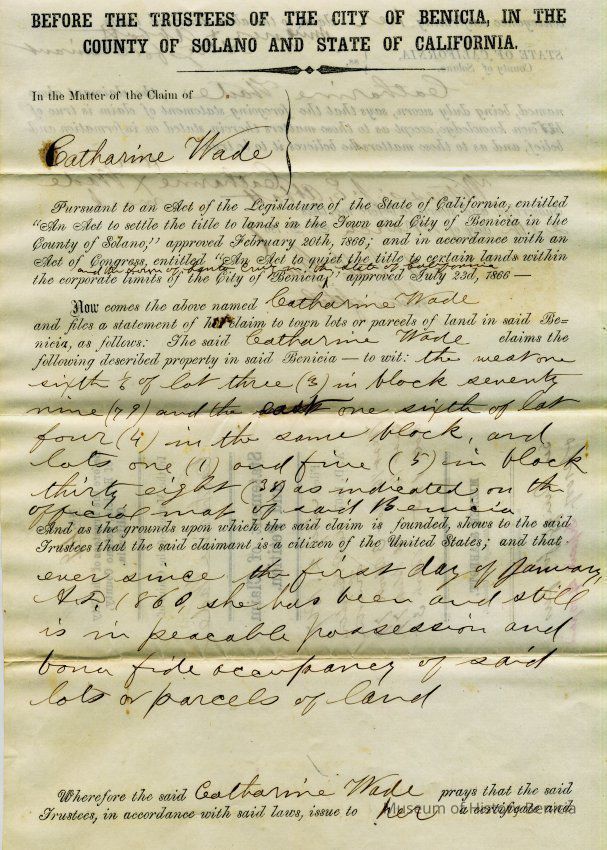 BEFORE THE TRUSTEES OF THE CITY OF BENICIA, IN THE
COUNTY OF SOLANO AND STATE OF CALIFORNIA.
In the Matter of the Claim of
Catharine Wade
Pursuant to an Act of the Legislature of the State of California, entitled
"An Act to settle the title to lands in the Town and City of Benicia in the
County of Solano," approved February 20th, 1866; and in accordance with an
Act of Congress, entitled "An Act to quiet the title to certain lands within
and the town of Santa Cruz in the State of California
the corporate limits of the City of Benicia," approved July 23d, 1866 —
Now comes the above named Catharine Wade
and files a statement of her claim to town lots or parcels of land in said Be-
nicia, as follows: The said Catharine Wade claims the
following described property in said Benicia — to wit: the west one
sixth of lot three (3) in block seventy
nine (79) and the east one sixth of lot
four (4) in the same block, and
lots one (1) and five (5) in block
thirty eight (38) as indicated on the
official map of said Benicia
And as the grounds upon which the said claim is founded, shows to the said
Trustees that the said claimant is a citizen of the United States; and that
ever since the first day of January,
A.D. 1860, she has been and still
is in peacable possession and
bona fide occupancy of said
lots or parcels of land
Wherefore the said Catharine Wade prays that the said
Trustees, in accordance with said laws, issue to her a certificate and
Museum of History Benicia